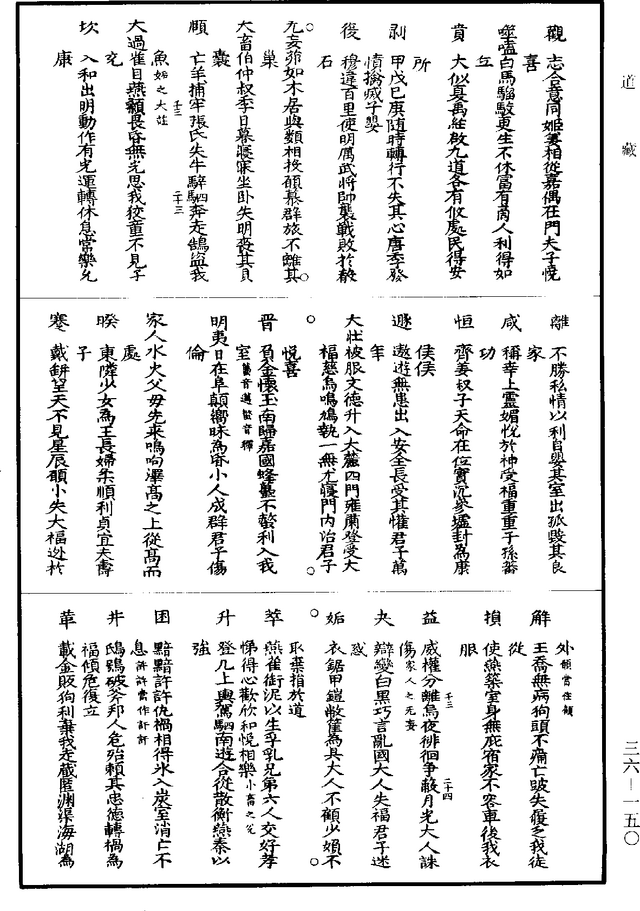 道藏
觀　志合意同姬姜相從嘉偶在門夫子悅
喜
噬嗑白馬騮駮更生不休富有商人利得如
丘
賁　大似夏禹經啟九道各有攸處民得安
所
剝　甲戊己庚隨時轉行不失其心唐季發
憤擒滅子嬰
復　穆違百里使明厲武將帥襲戰敗於殽
石
无妄葆如木居與類相投願慕群旅不離其
巢
大畜伯仲叔季日暮寢寐坐卧失明喪其貝
囊
頤　亡羊捕牢張氏失牛騂駟奔走鵠盜我
魚姤之大壯
十三　二十三
大過雀目燕頷畏昏無光思我狡童不見子
充
坎　入和出明動作有光運轉休息常樂允
康
離　不勝私情以利自嬰其室出孤毀其良
家
咸　稱幸上靈媚悅於神受福重重子孫蕃
功
恒　齊姜叔子天命在位實沉參墟封為康
侯侯
遯　遨遊無患出入安全長受其懽君子萬
年
大壯被服文德升入大麓四門雍肅登受大
福慈烏鳴鳩執一無尤寢門內治君子
悅喜
晉　負金懷玉南歸嘉國蜂蠆不螫利入我
室
明夷日在阜顛嚮昧為昏小人成群君子傷
倫
家人水火父母先來鳴呴澤髙之上從髙而
處
睽　東隣少女為王長婦柔順利貞宜夫壽
子
蹇　戴缾望天不見星辰顧小失大福逃於
外
解　王喬無病狗頭不痛亡跛失履乏我徒
從
損　使燕築室身無庇宿家不容車後我衣
服
益　威權分離烏夜徘徊爭蔽月光大人誅
傷家人之无妄
十三　二十四
夬　辯變白黑巧言亂國大人失福君子迷
惑
姤　衣鋸甲鎧敝筐為具大人不顧少婦不
取棄捐於道
萃　燕雀銜泥以生孚乳兄弟六人交好孝
悌得心歡欣和悅相樂小畜之兌
升　登几上輿駕駟南遊合從散衡燕秦以
強
困　黯黯許許仇禍相得氷入炭室消亡不
息
井　鴟鴞破斧邦人危殆賴其忠德轉禍為
福傾危復立
革　載金販狗利棄我走藏匿淵渠海湖為
三六—一五〇